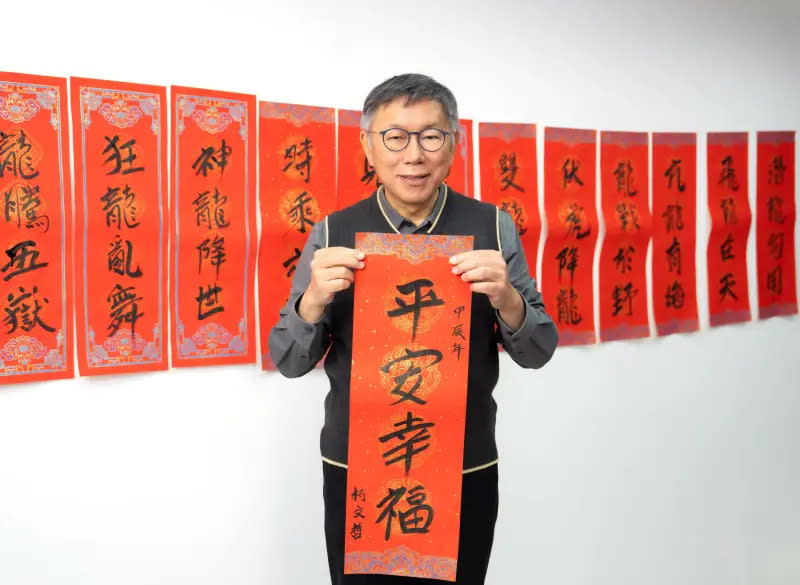 甲辰年
平安幸福
柯文哲
潛龍勿用
飛龍在天
亢龍有悔
龍戰於野
伏虎降龍
雙龍
時乘
神龍降世
狂龍亂舞
龍騰五嶽